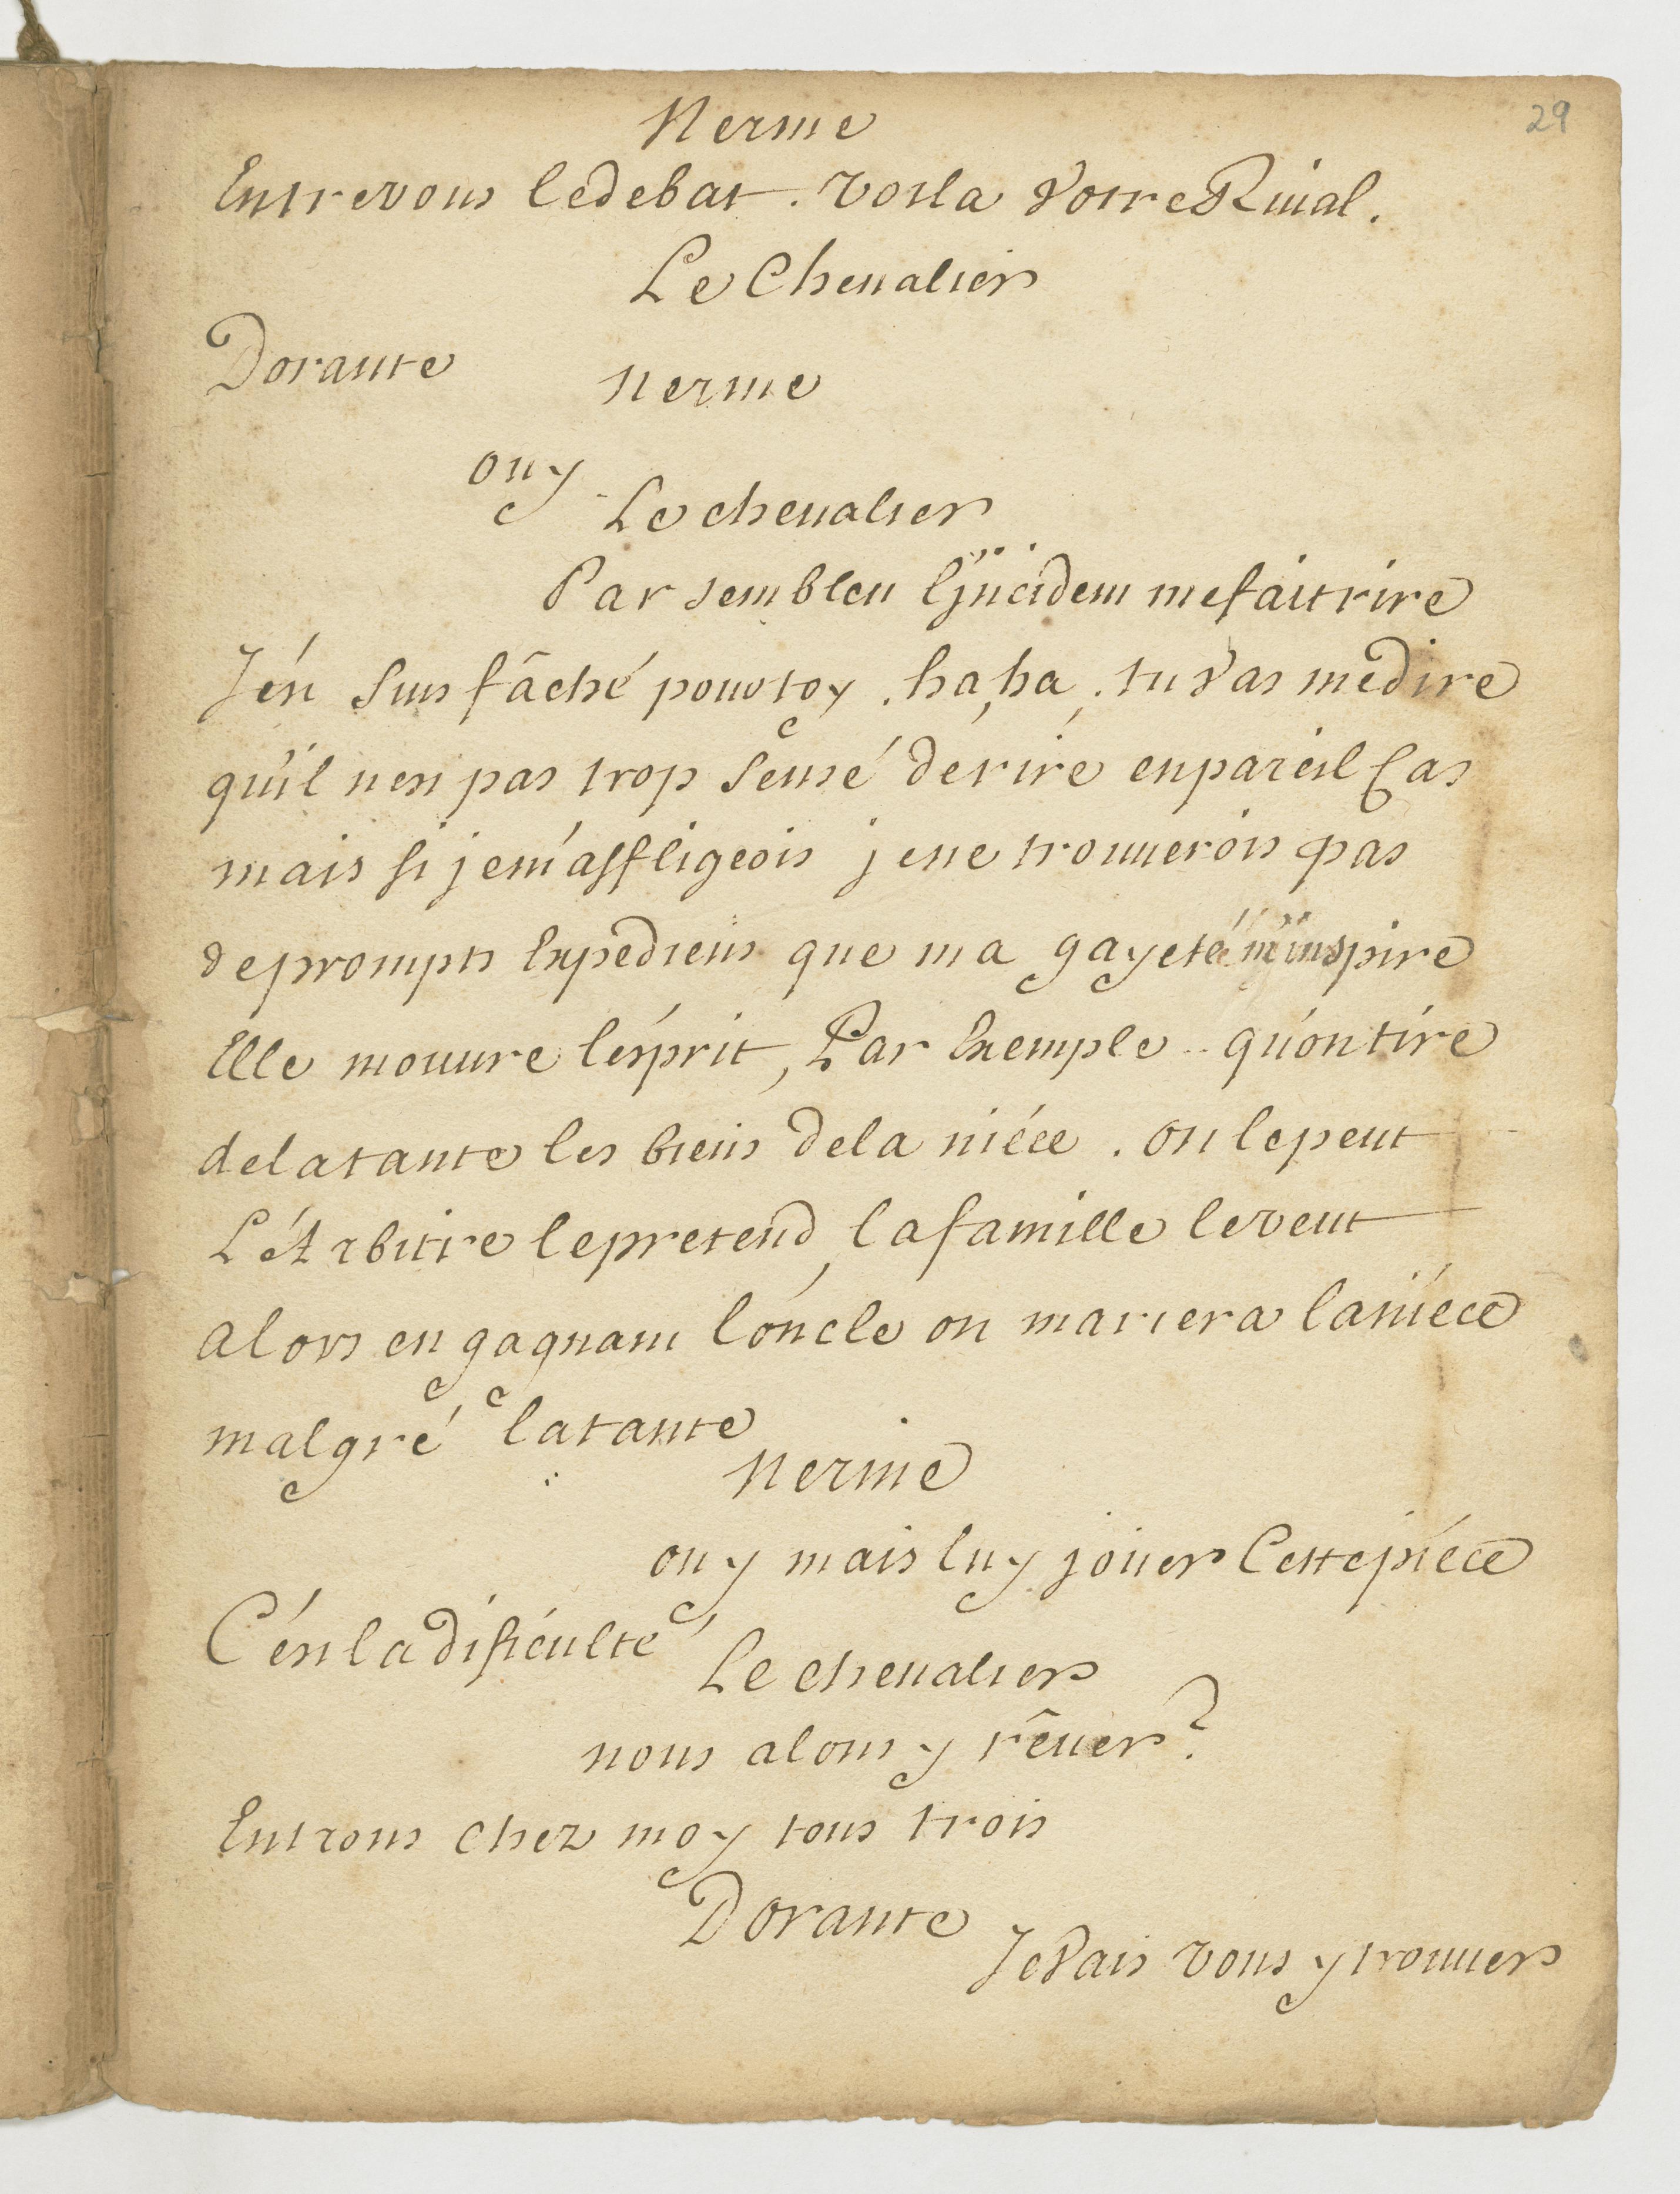 29
Nerine
Entrevous ledebat. voila votre Riual.
Le Cheualier
Dorante
Nerine
ouy
Le cheualier
Par sembleu l'jncident mefait rire
J'én suis fâché pour toy. ha, ha, tu vas medire
qu'il nest pas trop sensé derire enpareil Cas
mais si jem'affligeois jene trouuerois pas
deprompts Expediens que ma gayeté m'inspire
Elle mouure l'ésprit, Par Exemple .. qu'ontire
delatante les biens dela niéce. on lepeut
L'Arbitre lepretend, lafamille leveut
alors en gagnant l'óncle on mariera laniéce
malgré latante
Nerine
ouy mais luy jouer Cettepiéce
C'ést la dificulté
Le cheualier
nous alons y rêuer?
Entrons chez moy tous trois
Dorante
Jevais vous y trouuer